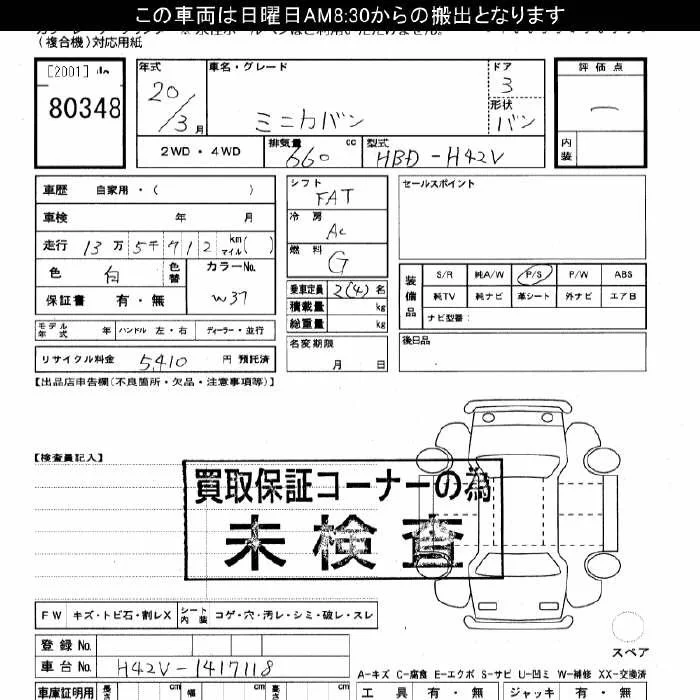 この車両は日曜日AM8:30からの搬出となります
(複合機)対応用紙
[2001]
80348
年式 車名・グレード ドア 評価点
20/3月 ミニカバン 3 一
形状 バン
内装
2WD・4WD 排気量 660 cc 型式 HBD-H42V
車歴 自家用・( )
車検 年 月
走行 13万5千912 km マイル( )
色 白 色替 カラーNo. W37
保証書 有・無
モデル年式 年 ハンドル 左・右 ディーラー・並行
リサイクル料金 5,410 円 預託済
シフト FAT
冷房 AC
燃料 G
乗車定員 2(4)名
積載量 kg
総重量 kg
名変期限 月 日
セールスポイント
装備品 S/R 純A/W P/S P/W ABS
純TV 純ナビ 革シート 外ナビ エアB
ナビ型番:
後日品
【出品店申告欄(不良箇所・欠品・注意事項等)】
【検査員記入】
買取保証コーナーの為
未検査
FW キズ・トビ石・割レX シート内装 コゲ・穴・汚レ・シミ・破レ・スレ
スペア
登録No.
車台No. H42V-1417118
A-キズ C-腐食 E-エクボ S-サビ U-凹ミ W-補修 XX-交換済
車庫証明用 長さ cm 幅 cm 高さ cm 工具 有・無 ジャッキ 有・無